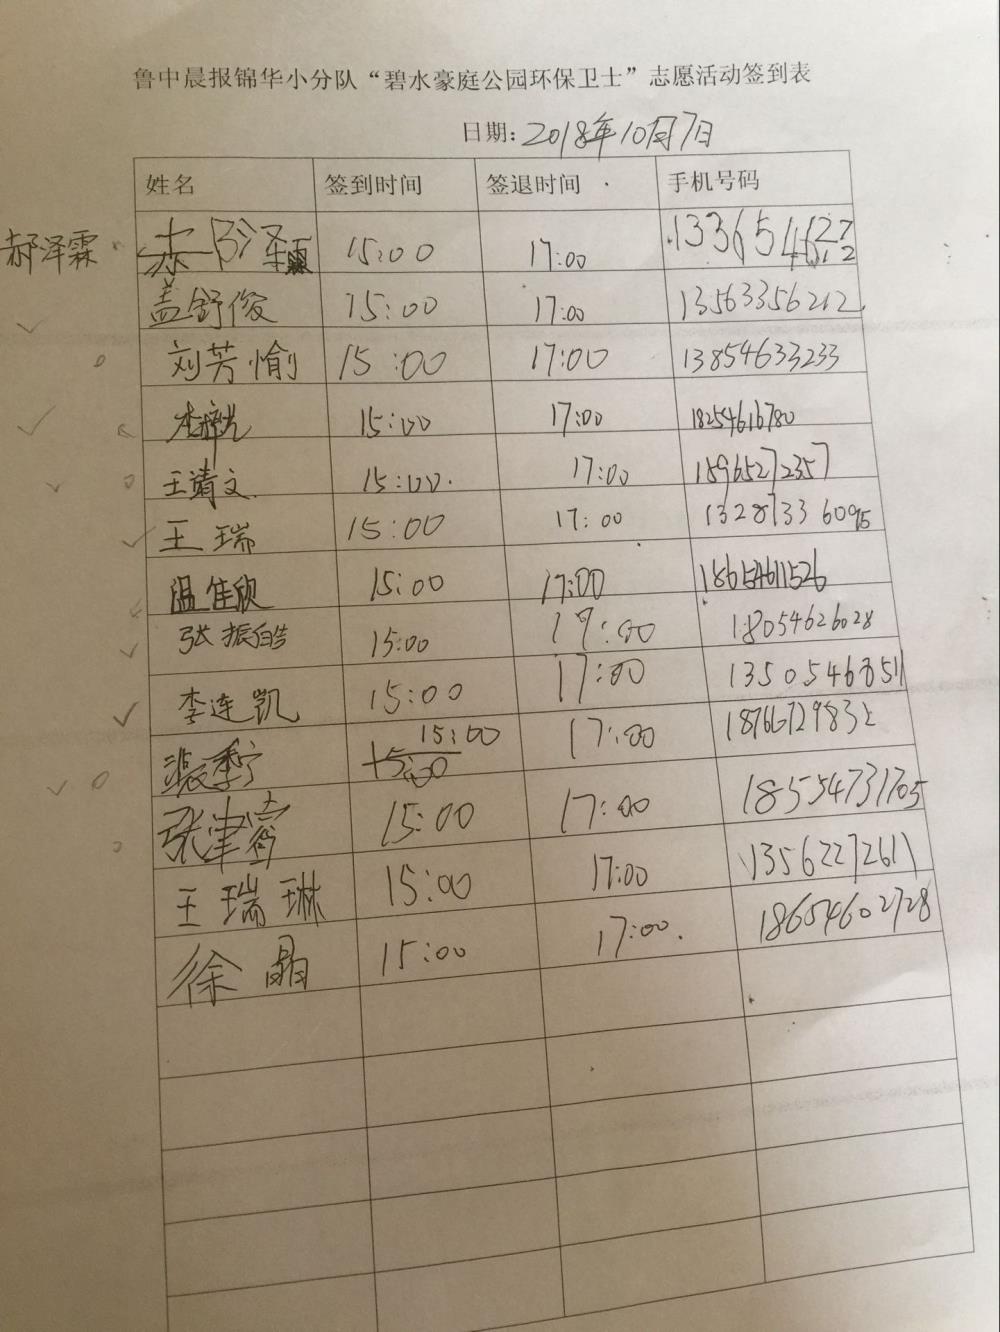 鲁中晨报锦华小分队“碧水豪庭公园环保卫士”志愿活动签到表
日期：2018年10月7日
姓名 签到时间 签退时间 手机号码
郝泽霖 郝泽霖 15:00 17:00
盖舒俊 15:00 17:00 13563356212
刘芳愉 15:00 17:00 13854633233
15:00 17:00 18254616780
王靖文 15:00 17:00 15965272357
王瑞 15:00 17:00 13287336095
温佳欣 15:00 17:00 18654611526
张振皓 15:00 17:00 18054626028
李连凯 15:00 17:00 13505463511
15:00 15:00 17:00 18766729832
15:00 17:00 18554731705
王瑞琳 15:00 17:00 13562272611
徐晶 15:00 17:00 18654602728